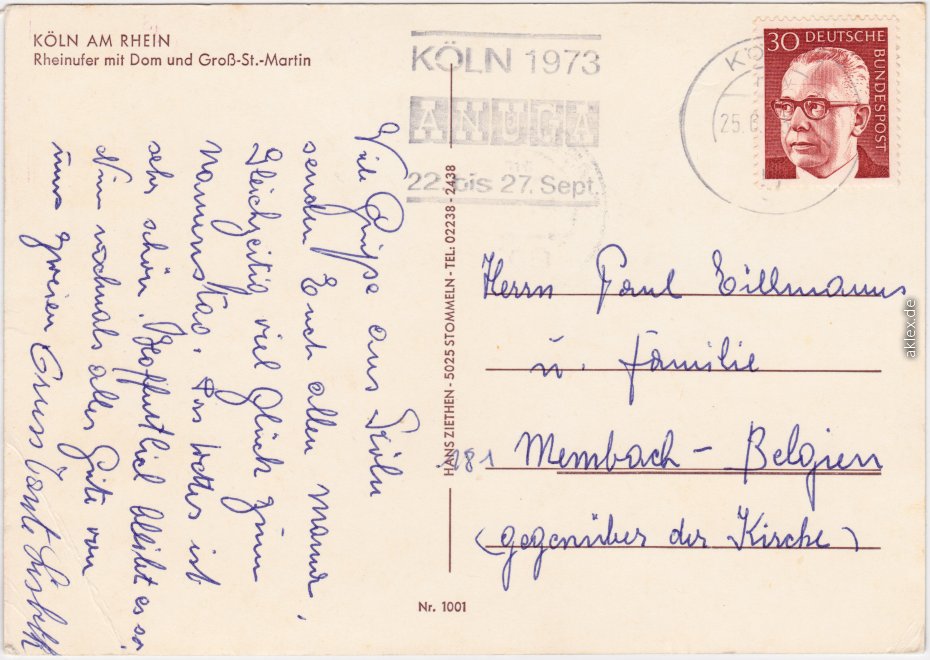 KÖLN AM RHEIN
Rheinufer mit Dom und Groß-St.-Martin
KÖLN 1973
ANUGA
22. bis 27. Sept.
KÖ
25.6.
30 DEUTSCHE
BUNDESPOST
Viele Grüsse aus Köln
senden Euch allen
Gleichzeitig viel Glück zum
Namenstag. Das Wetter ist
sehr schön. Hoffentlich bleibt es so.
Nun nochmals alles Gute von
uns zweien Gruss Tante Lisbeth
HANS ZIETHEN - 5025 STOMMELN - TEL: 02238 - 2438
Nr. 1001
Herrn Paul Tillmanns
u. Familie
281 Membach - Belgien
(gegenüber der Kirche)
aklex.de